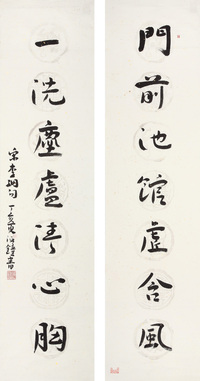 門前池館虛含風
一洗塵慮清心胸
宋李綱句 丁亥夏